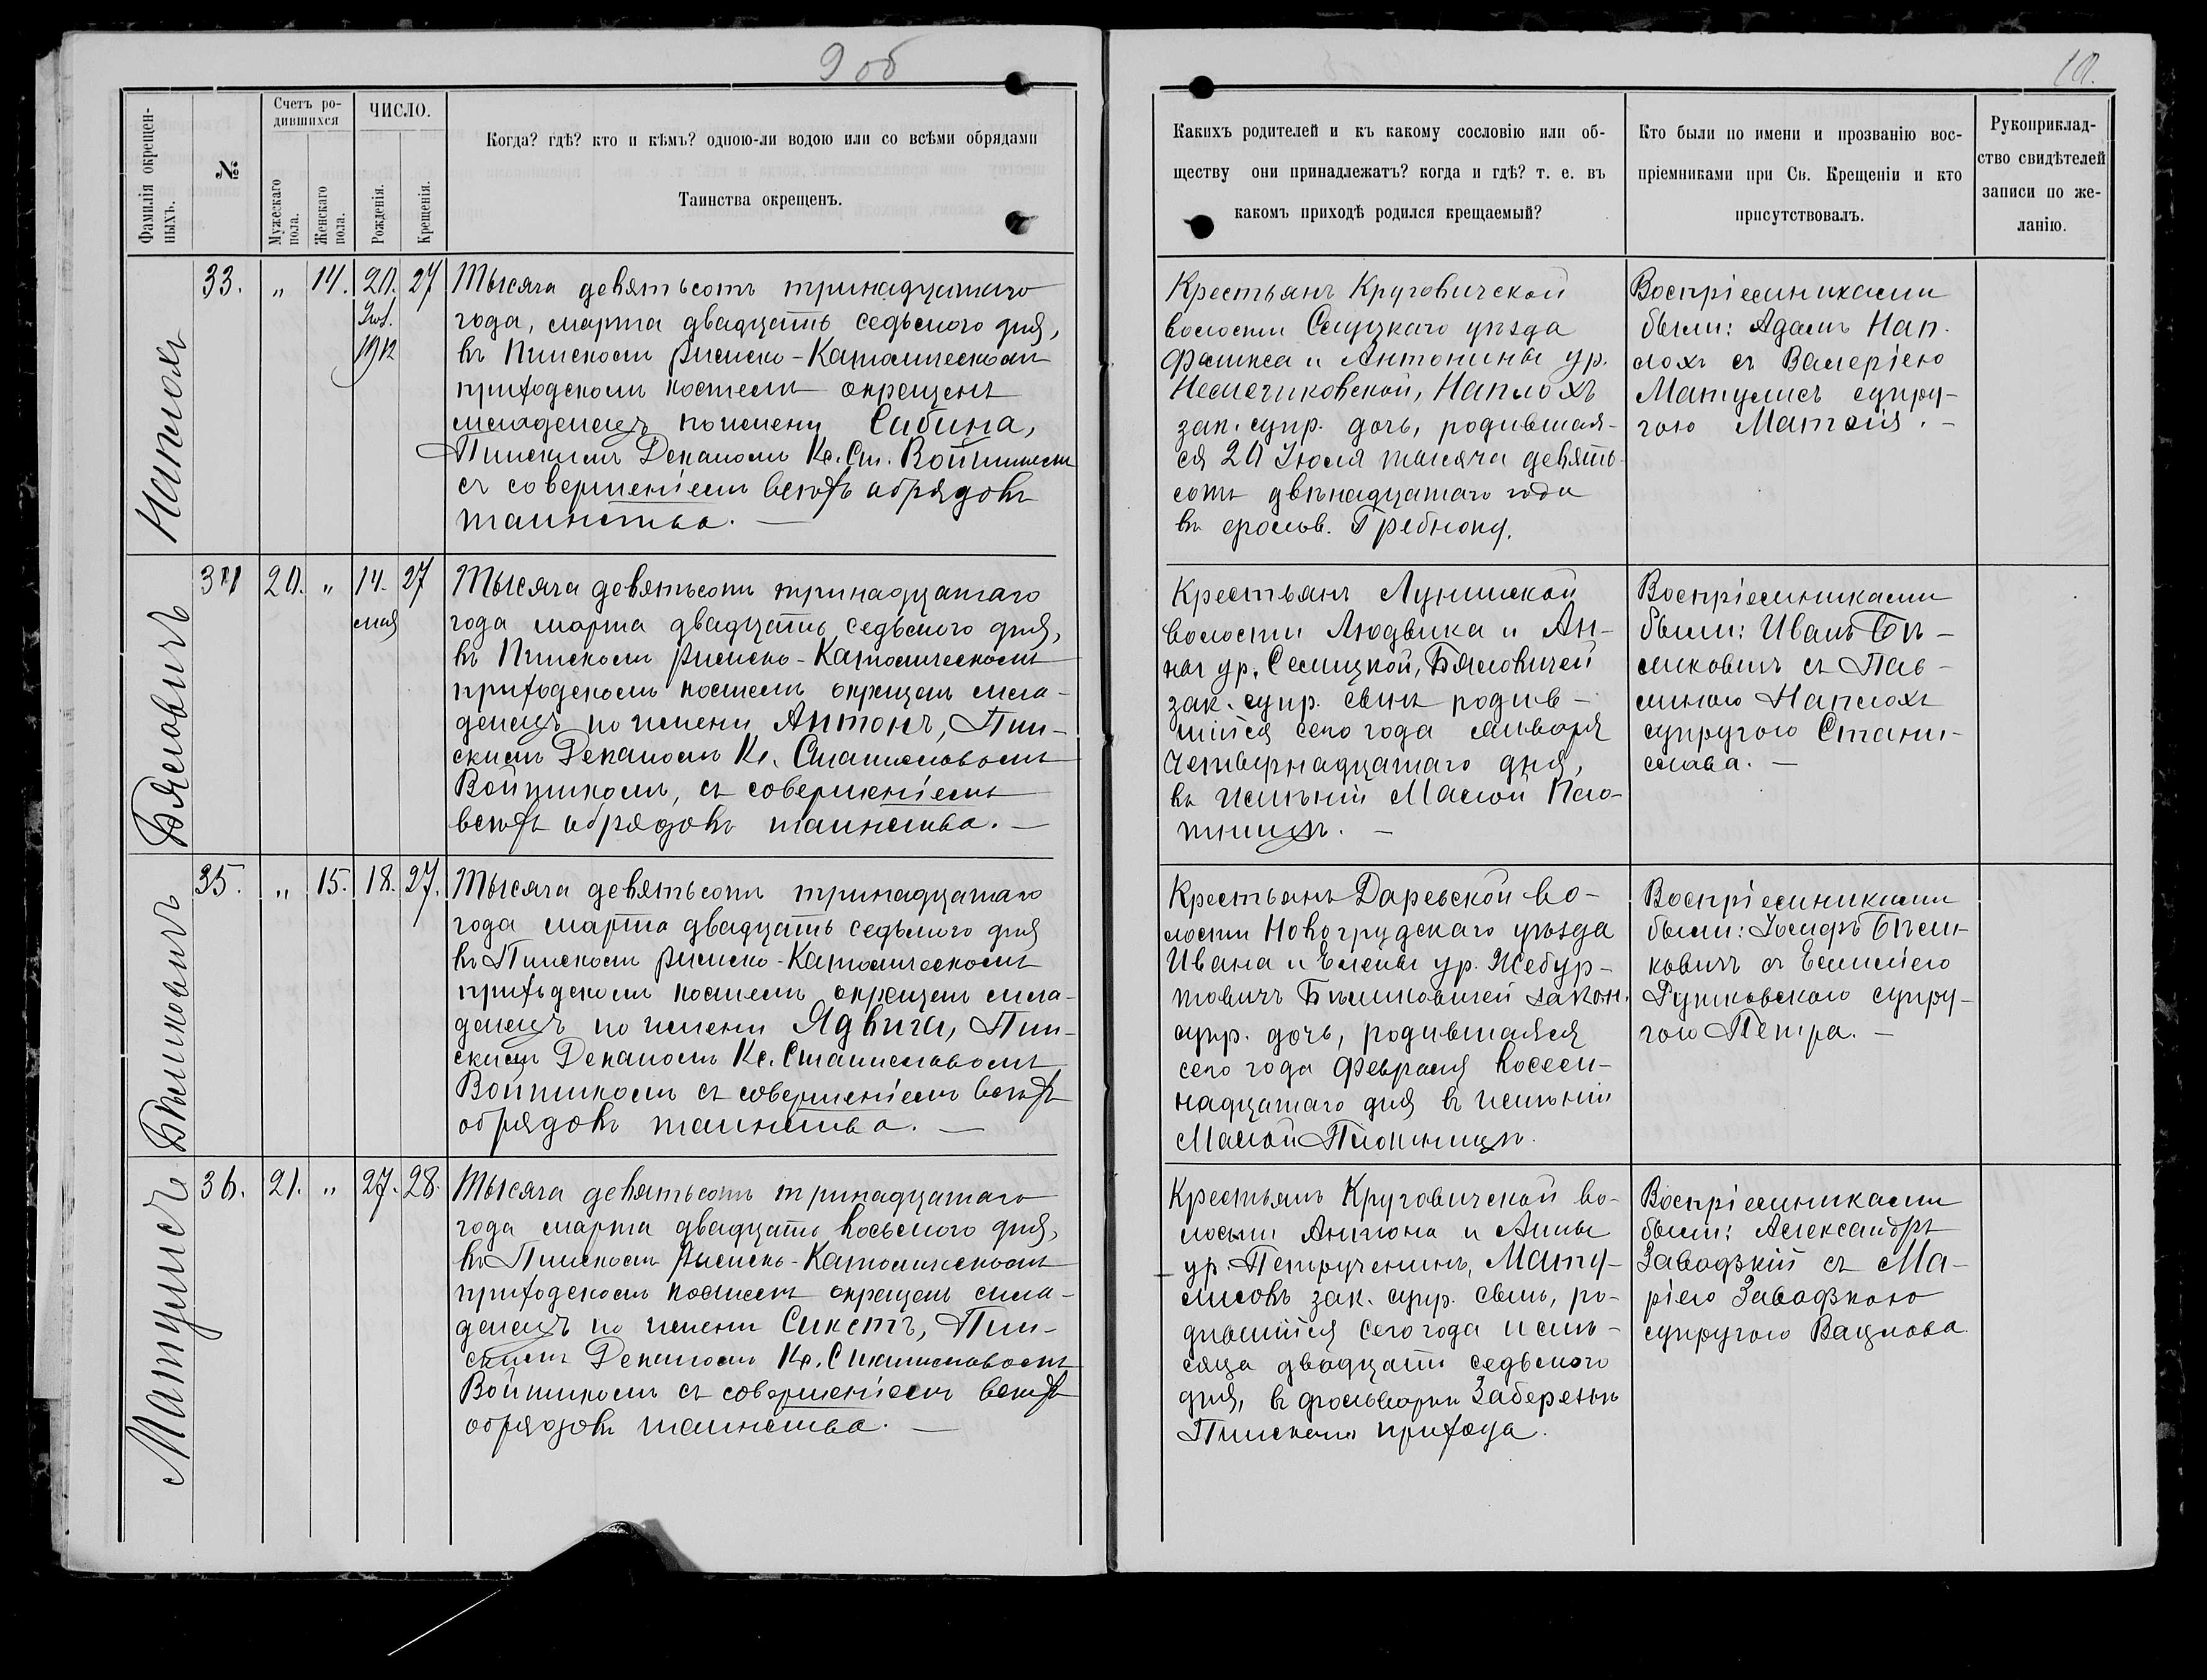 9 об
10.
Фамилія окрещен-
ныхъ.
№
Счетъ ро-
дившихся
Мужескаго
пола.
Женскаго
пола.
ЧИСЛО.
Рожденія.
Крещенія.
Когда? гдѣ? кто и кѣмъ? одною-ли водою или со всѣми обрядами
Таинства окрещенъ.
Какихъ родителей и къ какому сословію или об-
ществу они принадлежатъ? когда и гдѣ? т. е. въ
какомъ приходѣ родился крещаемый?
Кто были по имени и прозванію вос-
пріемниками при Св. Крещеніи и кто
присутствовалъ.
Рукоприклад-
ство свидѣтелей
записи по же-
ланію.
Наплохъ
33.
„
14.
20.
Іюл.
1912
27
Тысяча девятьсотъ тринадцатаго
года, марта двадцать седьмого дня,
въ Пинскомъ Римско-Католическомъ
приходскомъ костелѣ окрещенъ
младенецъ по имени Сабина,
Пинскимъ Деканомъ Кс. Ст. Войтникомъ
съ совершеніемъ всѣхъ обрядовъ
таинства. —
Крестьянъ Круговичской
волости Слуцкаго уѣзда
Феликса и Антонины ур.
Наплохъ
зак. супр. дочь, родившая-
ся 20 Іюля тысяча девять-
сотъ двѣнадцатаго года
въ фольв.
Воспріемниками
были: Адамъ Нап-
лохъ съ Валеріею
Матулисъ супру-
гою Матвія. —
Бяловичъ
34
20.
„
14.
27
Тысяча девятьсотъ тринадцатаго
года марта двадцать седьмого дня,
въ Пинскомъ Римско-Католическомъ
приходскомъ костелѣ окрещенъ мла-
денецъ по имени Антонъ, Пин-
скимъ Деканомъ Кс. Станиславомъ
Войтникомъ, съ совершеніемъ
всѣхъ обрядовъ таинства. —
Крестьянъ Лунинской
волости Людвика и Ан-
ны ур. Селицкой, Бяловичей
зак. супр. сынъ родив-
шійся сего года января
четвернадцатаго дня,
въ имѣніи Малой Пло-
тницѣ. —
Воспріемниками
были: Иванъ Бѣ-
ликовичъ съ Пав-
линою Наплохъ
супругою Стани-
слава. —
Бѣликовичъ
35.
„
15.
18.
27.
Тысяча девятьсотъ тринадцатаго
года марта двадцать седьмого дня
въ Пинскомъ Римско-Католическомъ
приходскомъ костелѣ окрещенъ мла-
денецъ по имени Ядвига, Пин-
скимъ Деканомъ Кс. Станиславомъ
Войтникомъ съ совершеніемъ всѣхъ
обрядовъ таинства. —
Крестьянъ Даревской во-
лости Новогрудскаго уѣзда
Ивана и Елены ур. Жебур-
товичъ Бѣликовичей закон.
супр. дочь, родившаяся
сего года февраля восем-
надцатаго дня въ имѣніи
Малой Плотницѣ.
Воспріемниками
были: Іосифъ Бѣли-
ковичъ съ Емиліею
Рутковскою супру-
гою Петра. —
Матулисъ
36.
21.
„
27.
28.
Тысяча девятьсотъ тринадцатаго
года марта двадцать восьмого дня,
въ Пинскомъ Римско-Католическомъ
приходскомъ костелѣ окрещенъ мла-
денецъ по имени Сикстъ, Пин-
скимъ Деканомъ Кс. Станиславомъ
Войтникомъ съ совершеніемъ всѣхъ
обрядовъ таинства. —
Крестьянъ Круговичской во-
лости Антона и Анны
ур. Петрученикъ, Мату-
лисовъ зак. супр. сынъ, ро-
дившійся сего года и мѣ-
сяца двадцать седьмого
дня, въ фольваркѣ Забережъ
Пинскаго прихода.
Воспріемниками
были: Александръ
Завадзкій съ Ма-
ріею Завадзкою
супругою Вацлава